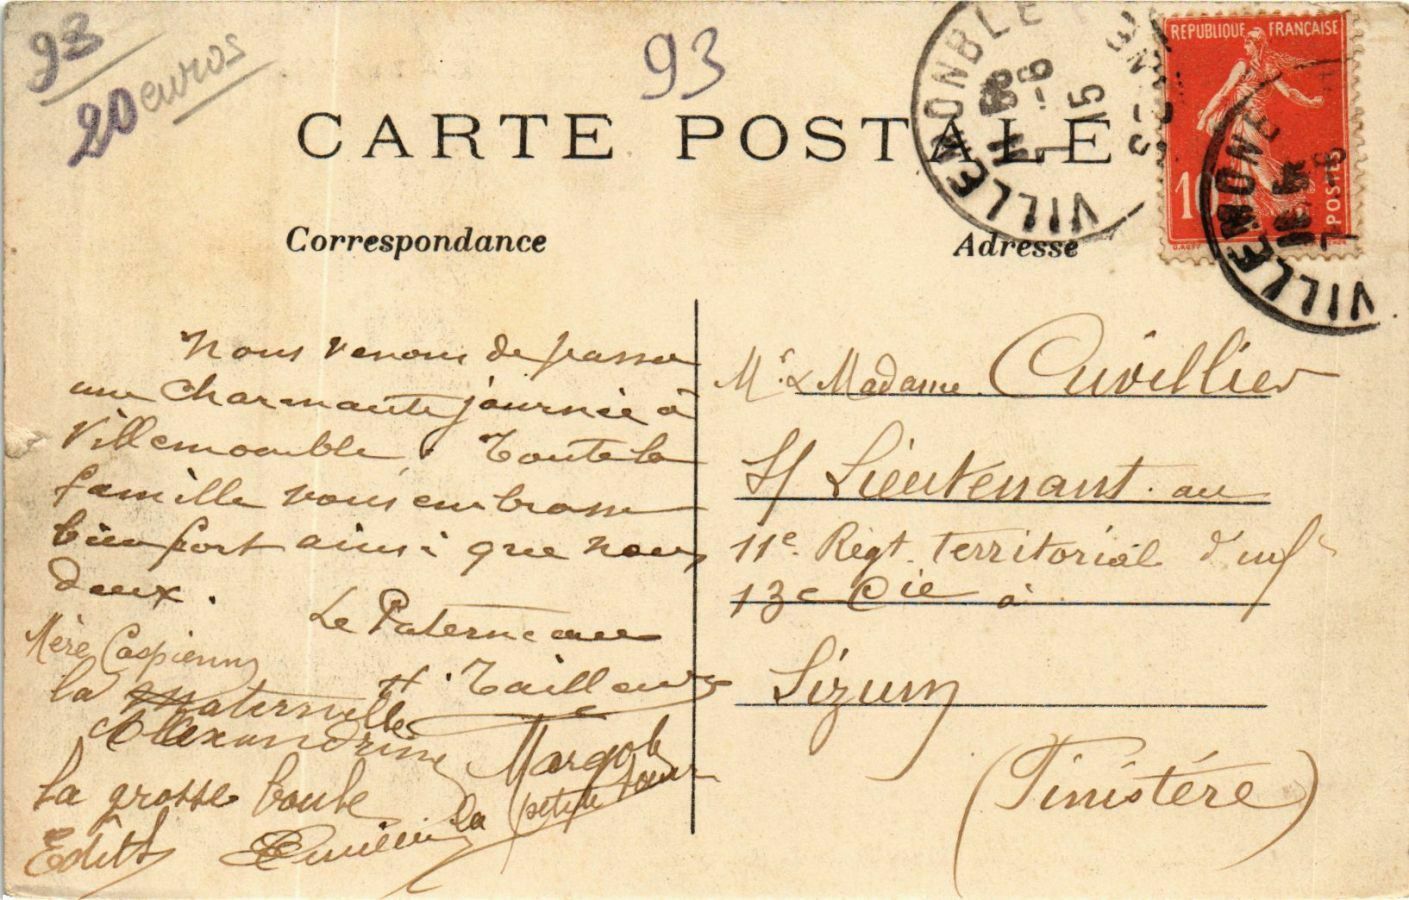 93
20 euros
93
CARTE POSTALE
VILLEMONBLE
7 - 6
15
REPUBLIQUE FRANÇAISE
10
POSTES
VILLEMONBLE
7 - 6
Correspondance
Adresse
Nous venons de passer
une charmante journée à
Villemomble. Toute la
famille vous embrasse
bien fort ainsi que nous
deux.
Le Paterne
H. Tailleur
Mère Caspienny
la Maternelle
Alexandrine
Margot
la petite soeur
la grosse boule
Edith
Mr & Madame Cuvillier
S/ Lieutenant au
11e Régt territorial d'infie
13e Cie à
Sizun
(Finistère)